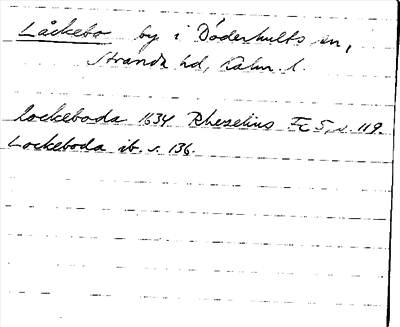 Låckebo by i Döderhults sn,
Stranda hd, Kalm. l.
lockeboda 1634 Rhezelius Fc 5, s. 119.
Lockeboda ib. s. 136.